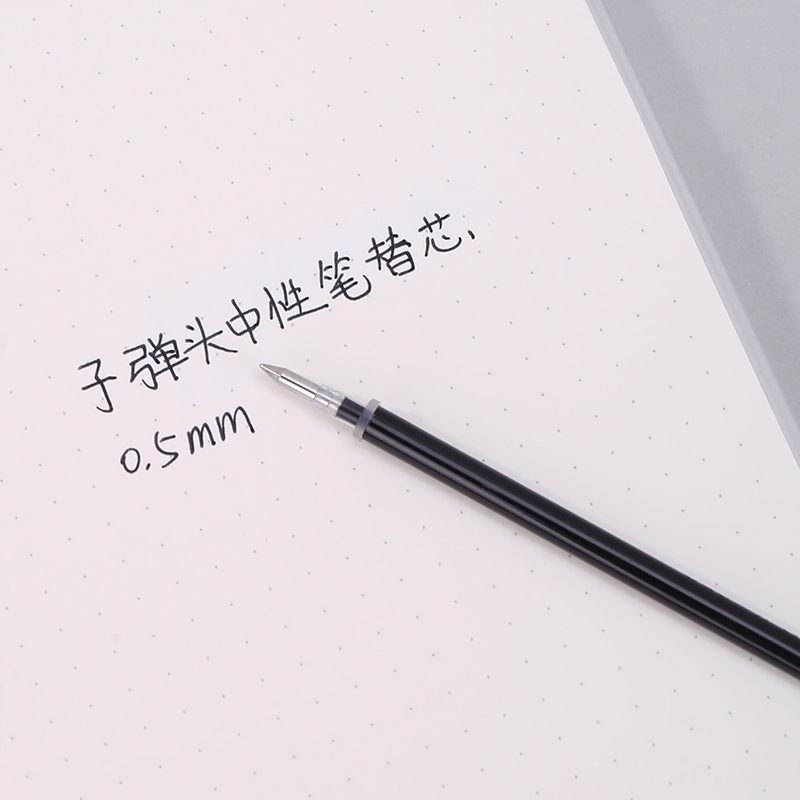 子弹头中性笔替芯.
0.5mm